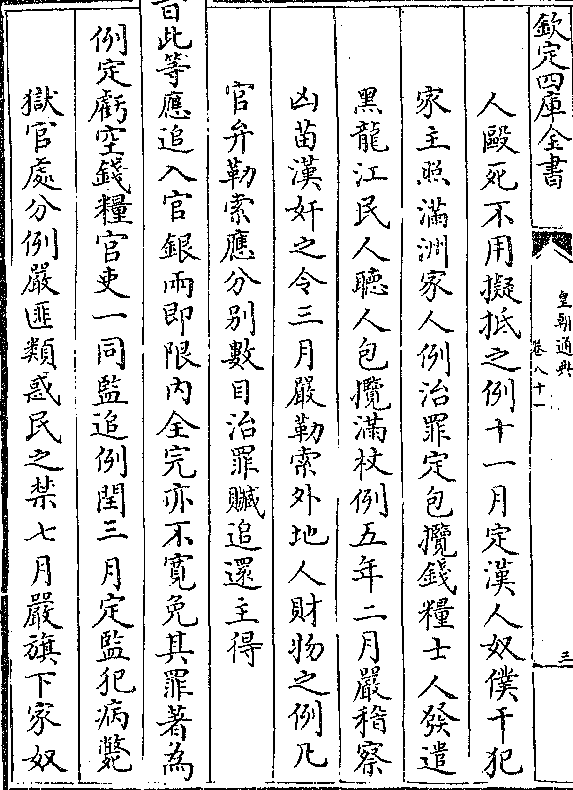 欽定四庫全書
皇朝通典
卷八十一
三
人毆死不用擬抵之例十一月定漢人奴僕干犯
家主照滿洲家人例治罪定包攬錢糧士人發遣
黑龍江民人聽人包攬滿杖例五年二月嚴稽察
凶苗漢奸之令三月嚴勒索外地人財物之例凡
官弁勒索應分别數目治罪贓追還主得
旨此等應追入官銀兩即限内全完亦不寛免其罪著為
例定虧空錢糧官吏一同監追例閏三月定監犯病斃
獄官處分例嚴匪類惑民之禁七月嚴旗下家奴